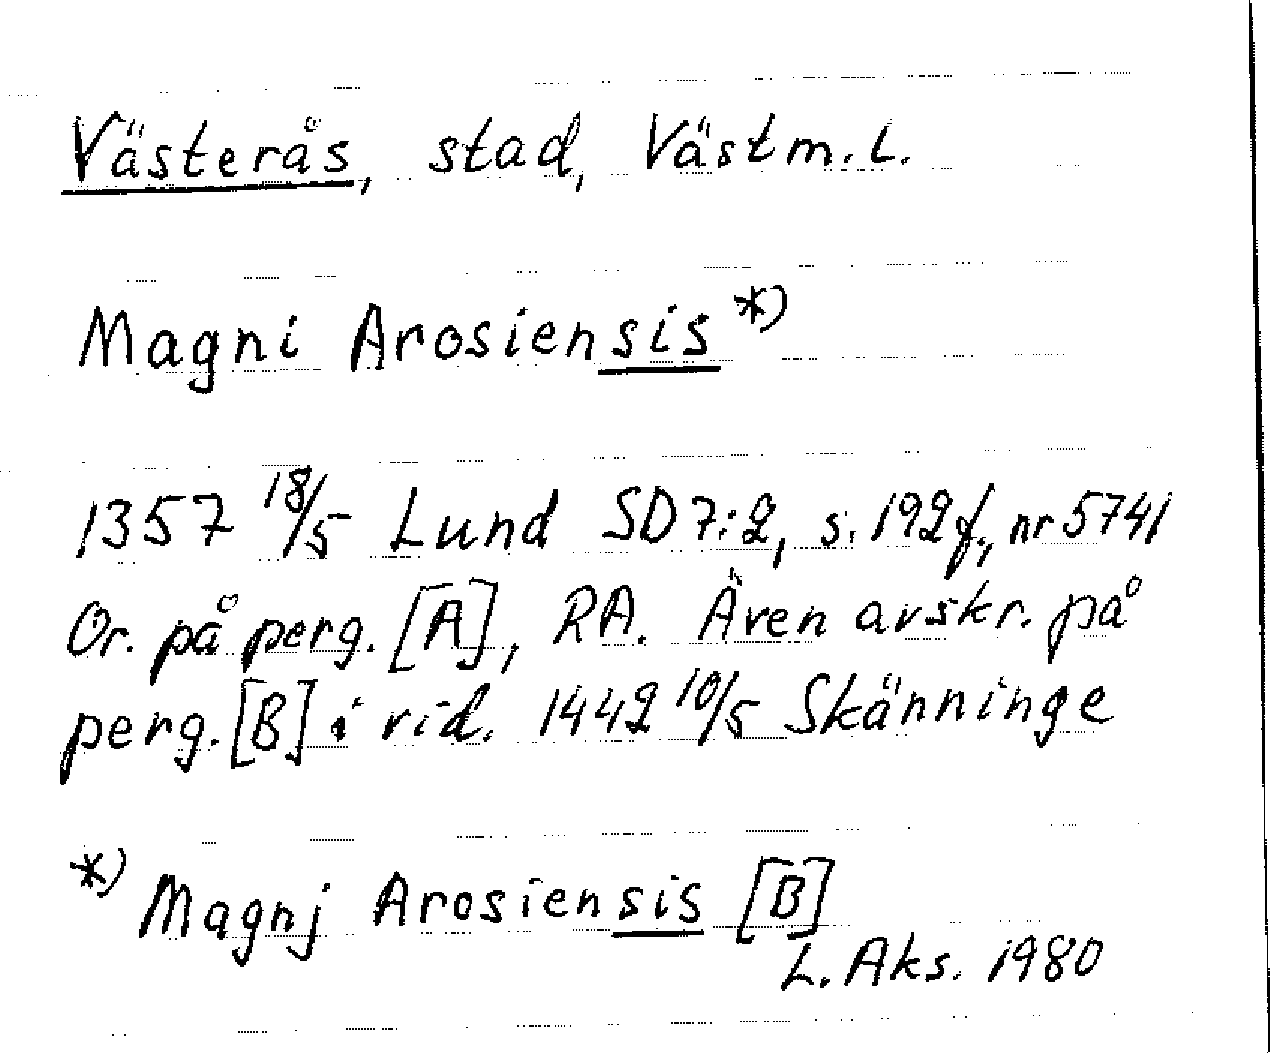 Västerås, stad, Västm.l.
Magni Arosiensis *)
1357 18/5 Lund SD 7:2, s. 192 f., nr 5741
Or. på perg. [A], RA. Även avskr. på
perg. [B] i vid. 1442 10/5 Skänninge
*) Magnj Arosiensis [B]
L. Aks. 1980